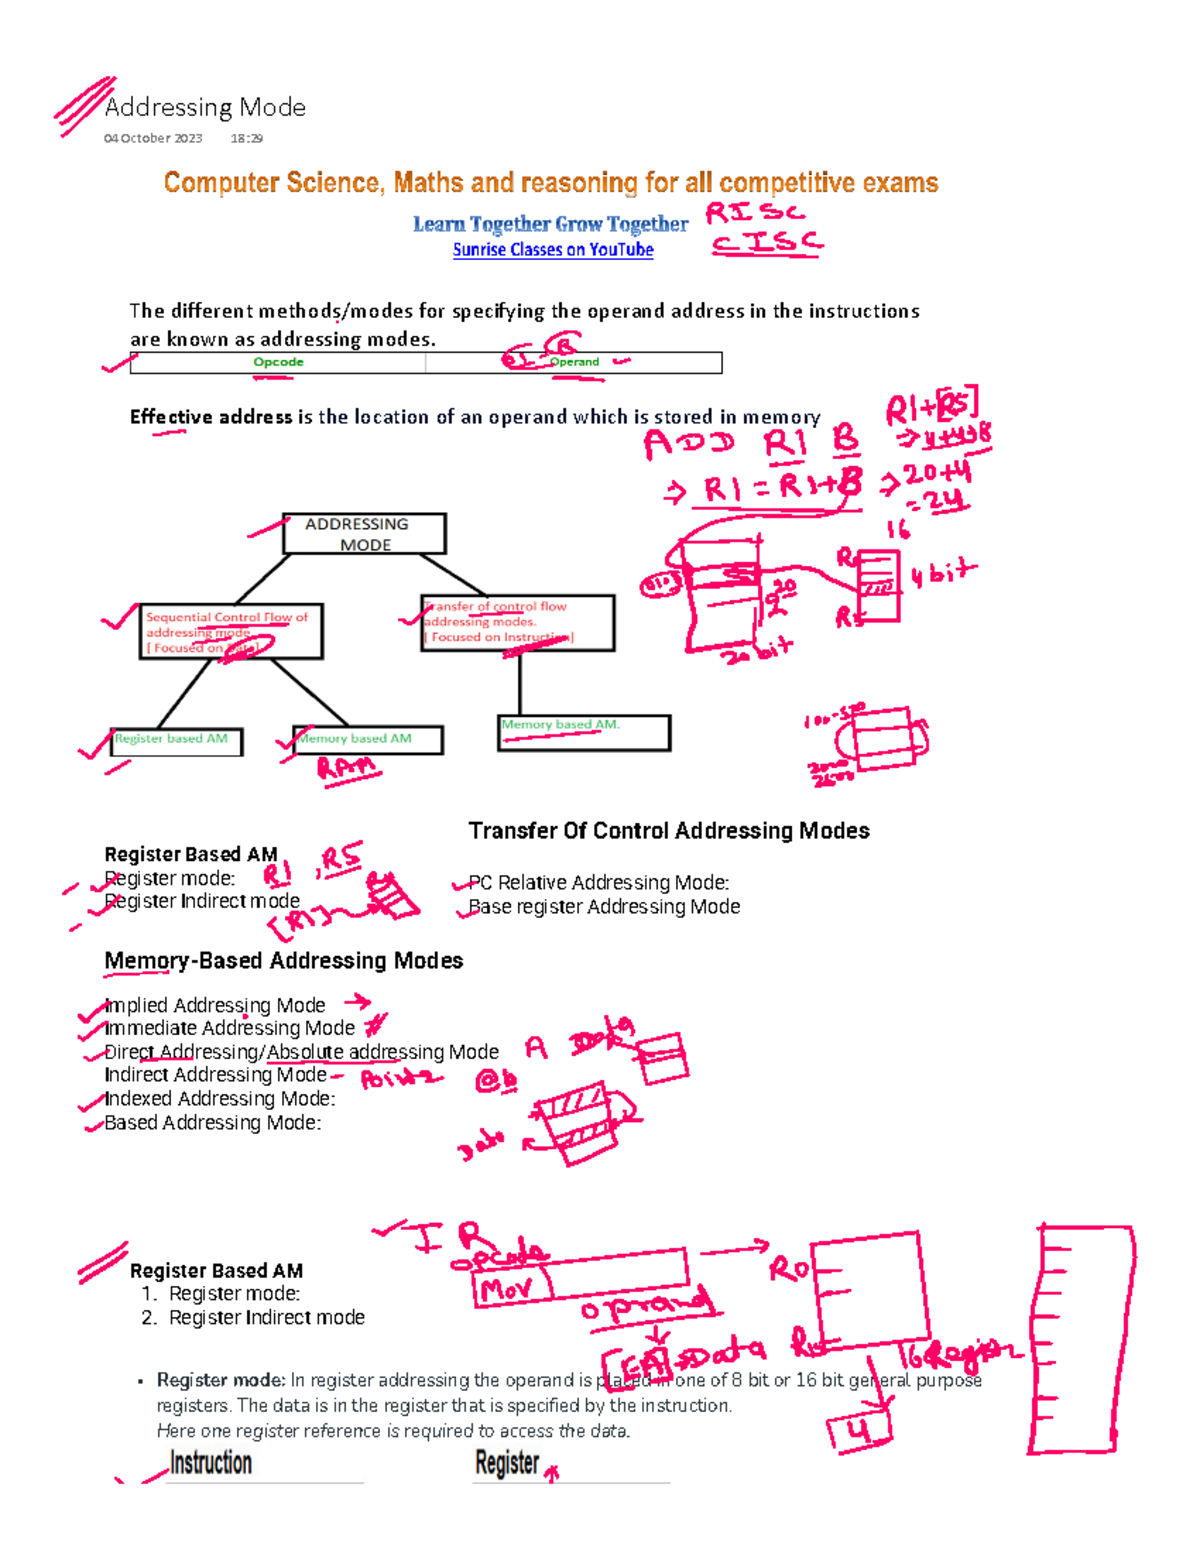 Addressing Mode
04 October 2023 18:29
Computer Science, Maths and reasoning for all competitive exams
Learn Together Grow Together
RISC
Sunrise Classes on YouTube
CISC
The different methods/modes for specifying the operand address in the instructions
are known as addressing modes.
B
Opcode Operand
Effective address is the location of an operand which is stored in memory
R1+[R5]
ADD R1 B
⇒ 4+4⇒8
⇒ R1 = R1+B ⇒ 20+4
= 24
16
ADDRESSING
MODE
R0
4 bit
20
Sequential Control Flow of
addressing mode
[ Focused on Data]
Transfer of control flow
addressing modes.
[ Focused on Instruction]
20 bit
Register based AM
Memory based AM
Memory based AM.
RAM
100-500
2000
Transfer Of Control Addressing Modes
Register Based AM
Register mode: R1 , R5
PC Relative Addressing Mode:
Register Indirect mode
Base register Addressing Mode
[R1]
Memory-Based Addressing Modes
Implied Addressing Mode →
Immediate Addressing Mode #
Direct Addressing/Absolute addressing Mode A Data
Indirect Addressing Mode - @b
Indexed Addressing Mode:
Based Addressing Mode:
Data
IR
opcode
Register Based AM
R0
1. Register mode:
MOV
oprand
2. Register Indirect mode
[EA]⇒Data
16 Register
• Register mode: In register addressing the operand is placed in one of 8 bit or 16 bit general purpose
registers. The data is in the register that is specified by the instruction.
4
Here one register reference is required to access the data.
Instruction Register